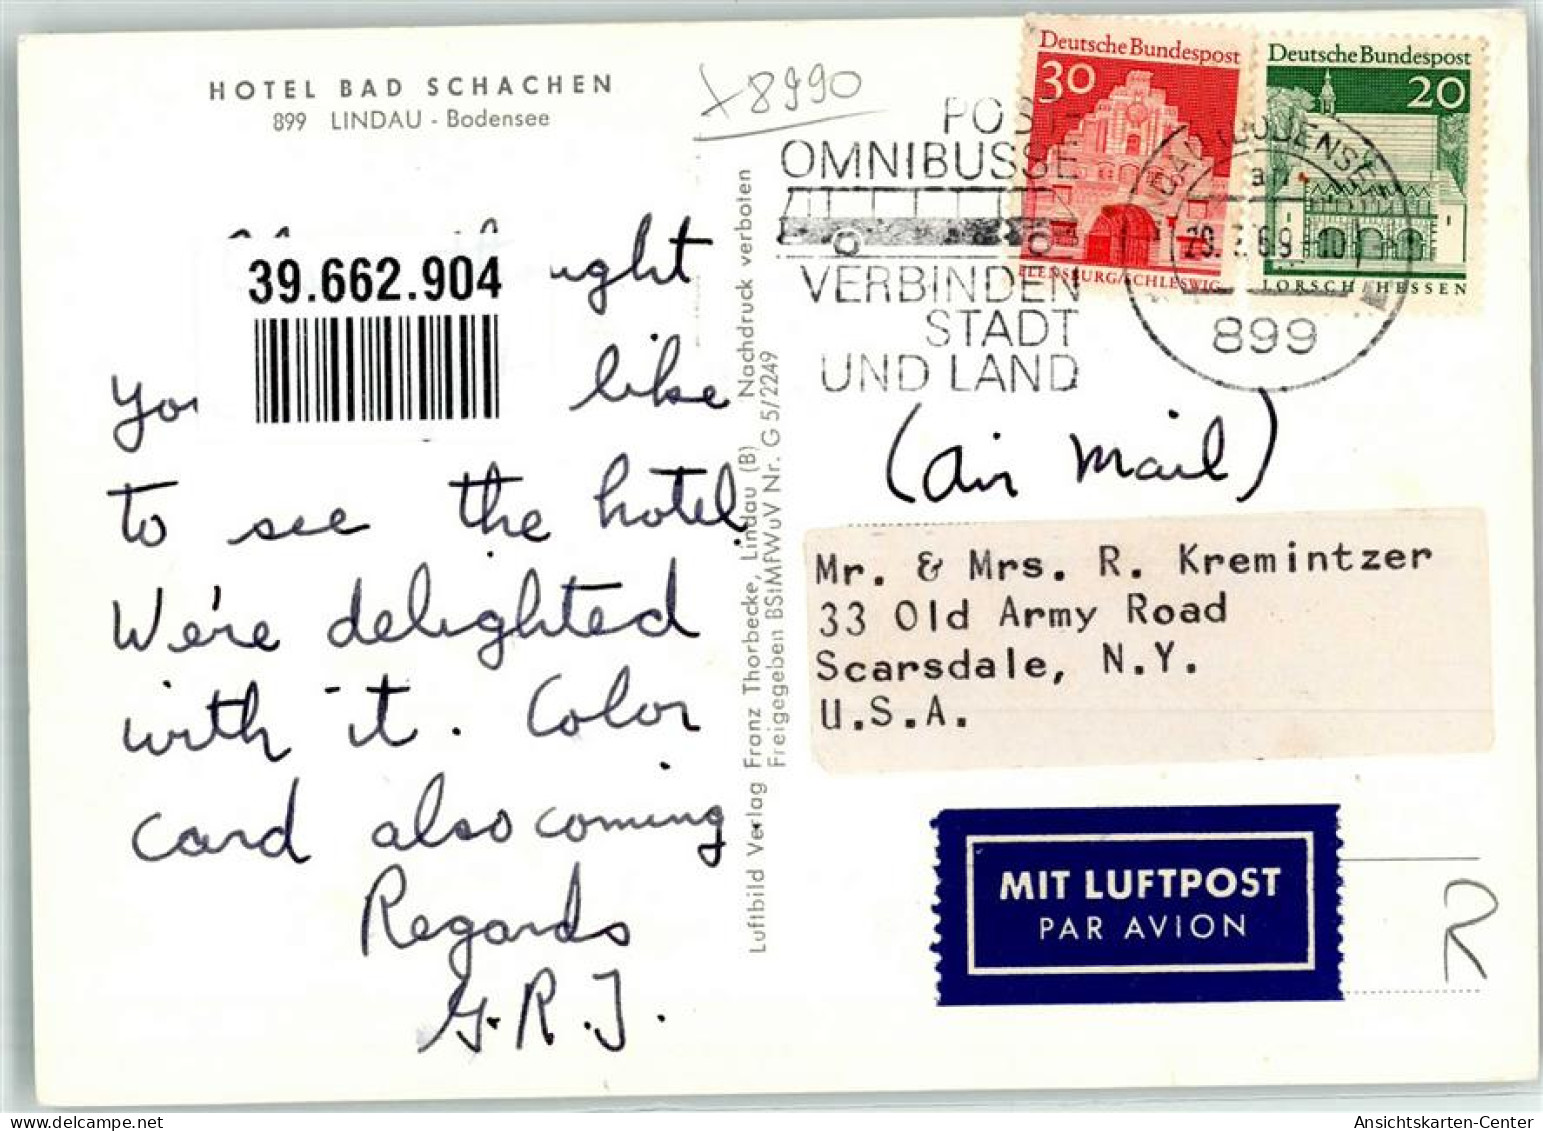 HOTEL BAD SCHACHEN
899 LINDAU - Bodensee
39.662.904
like
to see the hotel.
We're delighted
with it. Color
card also coming
Regards
G.R.J.
Luftbild Verlag Franz Thorbecke, Lindau (B) Nachdruck verboten
Freigegeben BStMfWuV Nr. G 5/2249
8990
POST-
OMNIBUSSE
VERBINDEN
STADT
UND LAND
Deutsche Bundespost
30
FLENSBURG/SCHLESWIG
Deutsche Bundespost
20
LORSCH HESSEN
899
(air mail)
Mr. & Mrs. R. Kremintzer
33 Old Army Road
Scarsdale, N.Y.
U.S.A.
MIT LUFTPOST
PAR AVION
R
Ansichtskarten-Center